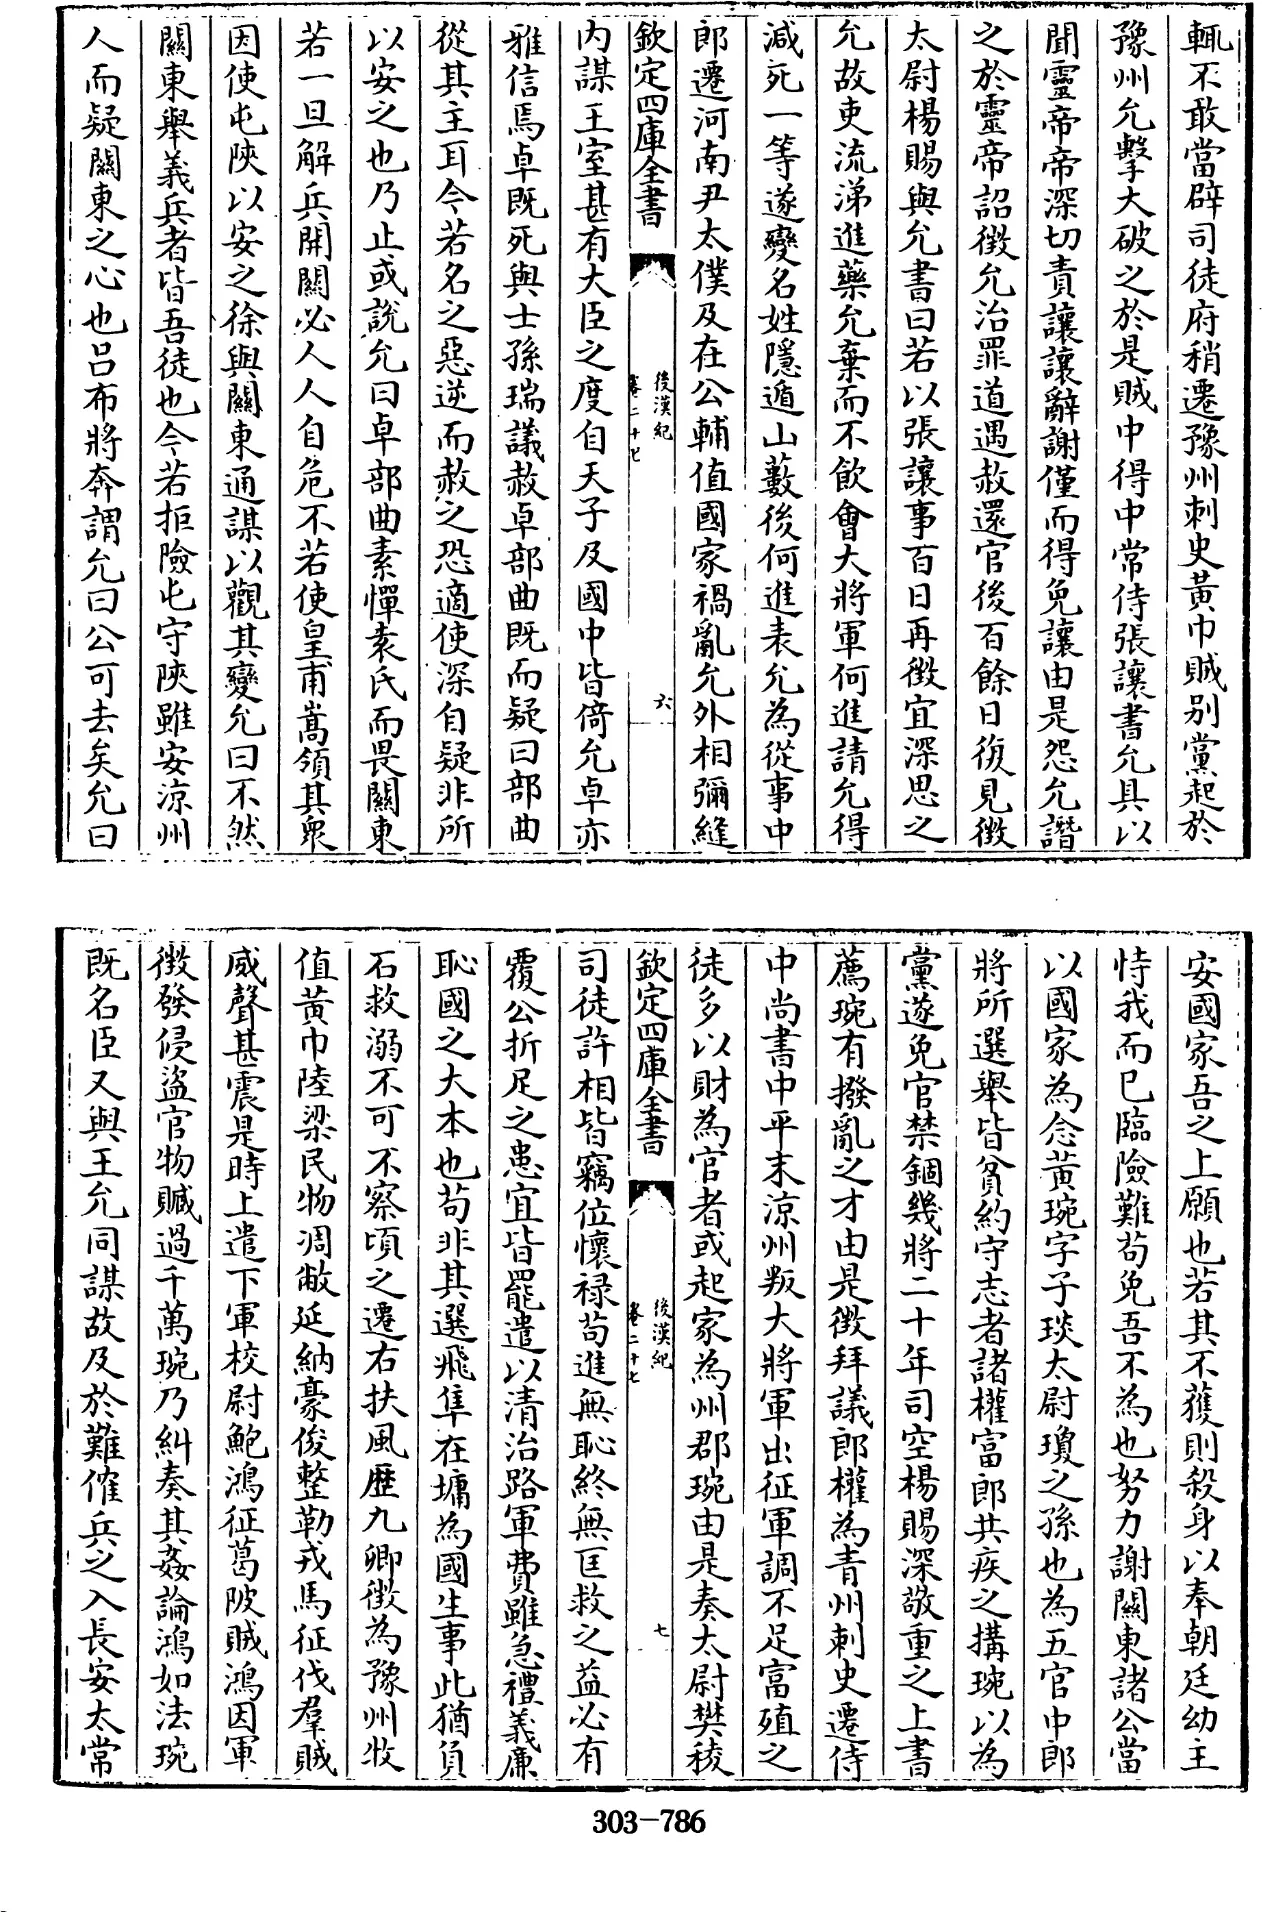 輒不敢當辟司徒府稍遷豫州刺史黃巾賊别黨起於
豫州允擊大破之於是賊中得中常侍張讓書允具以
聞靈帝帝深切責讓讓辭謝僅而得免讓由是怨允譖
之於靈帝詔徴允治罪道遇赦還官後百餘日復見徴
太尉楊賜與允書曰若以張讓事百日再徴宜深思之
允故吏流涕進藥允棄而不飲會大將軍何進請允得
減死一等遂變名姓隱遁山藪後何進表允為從事中
郎遷河南尹太僕及在公輔值國家禍亂允外相彌縫
欽定四庫全書
後漢紀
卷二十七
六
内謀王室甚有大臣之度自天子及國中皆倚允卓亦
雅信焉卓既死與士孫瑞議赦卓部曲既而疑曰部曲
從其主耳今若名之惡逆而赦之恐適使深自疑非所
以安之也乃止或說允曰卓部曲素憚袁氏而畏關東
若一旦解兵開關必人人自危不若使皇甫嵩領其衆
因使屯陜以安之徐與關東通謀以觀其變允曰不然
關東舉義兵者皆吾徒也今若拒險屯守陜雖安涼州
人而疑關東之心也吕布將奔謂允曰公可去矣允曰
安國家吾之上願也若其不獲則殺身以奉朝廷幼主
恃我而已臨險難苟免吾不為也努力謝關東諸公當
以國家為念黃琬字子琰太尉瓊之孫也為五官中郎
將所選舉皆貧約守志者諸權富郎共疾之搆琬以為
黨遂免官禁錮幾將二十年司空楊賜深敬重之上書
薦琬有撥亂之才由是徴拜議郎權為青州刺史遷侍
中尚書中平末涼州叛大將軍出征軍調不足富殖之
徒多以財為官者或起家為州郡琬由是奏太尉樊稜
欽定四庫全書
後漢紀
卷二十七
七
司徒許相皆竊位懷禄苟進無恥終無匡救之益必有
覆公折足之患宜皆罷遣以清治路軍費雖急禮義廉
恥國之大本也苟非其選飛隼在墉為國生事此猶負
石救溺不可不察頃之遷右扶風歴九卿徴為豫州牧
值黃巾陸梁民物凋敝延納豪俊整勒戎馬征伐羣賊
威聲甚震是時上遣下軍校尉鮑鴻征葛陂賊鴻因軍
徴發侵盜官物贓過千萬琬乃糾奏其姦論鴻如法琬
既名臣又與王允同謀故及於難傕兵之入長安太常
303-786